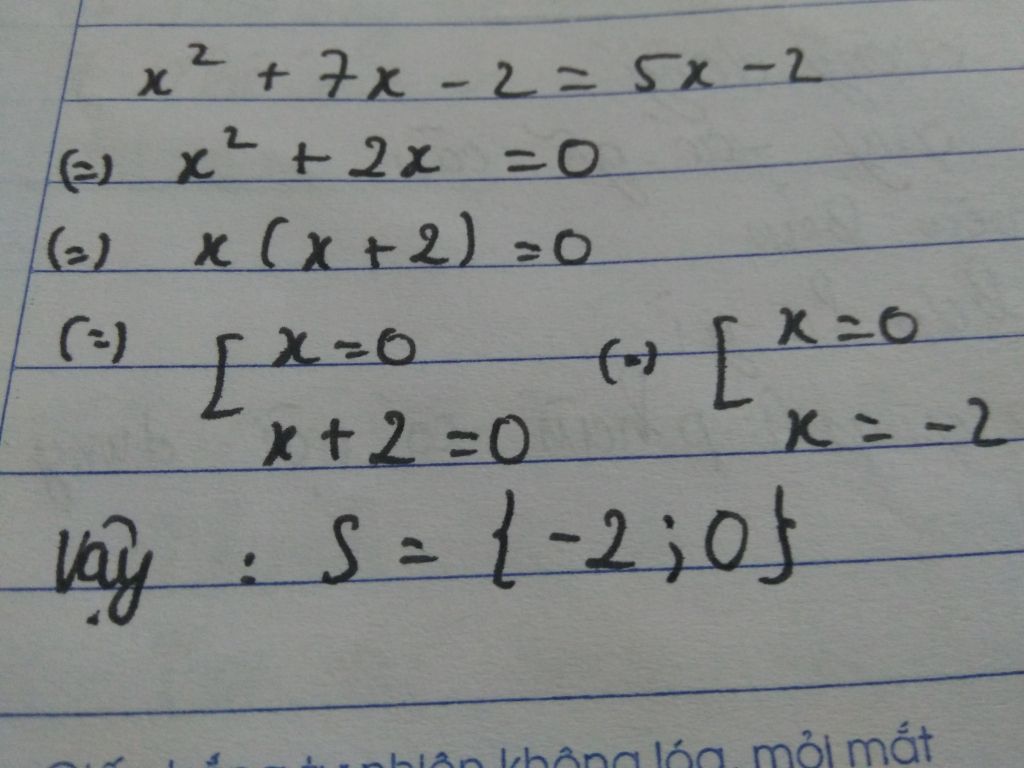 x² + 7x - 2 = 5x - 2
(=) x² + 2x = 0
(=) x (x + 2) = 0
(=) [ x = 0 (=) [ x = 0
x + 2 = 0 x = -2
Vậy : S = {-2 ; 0}
tự nhiên không lóa, mỏi mắt